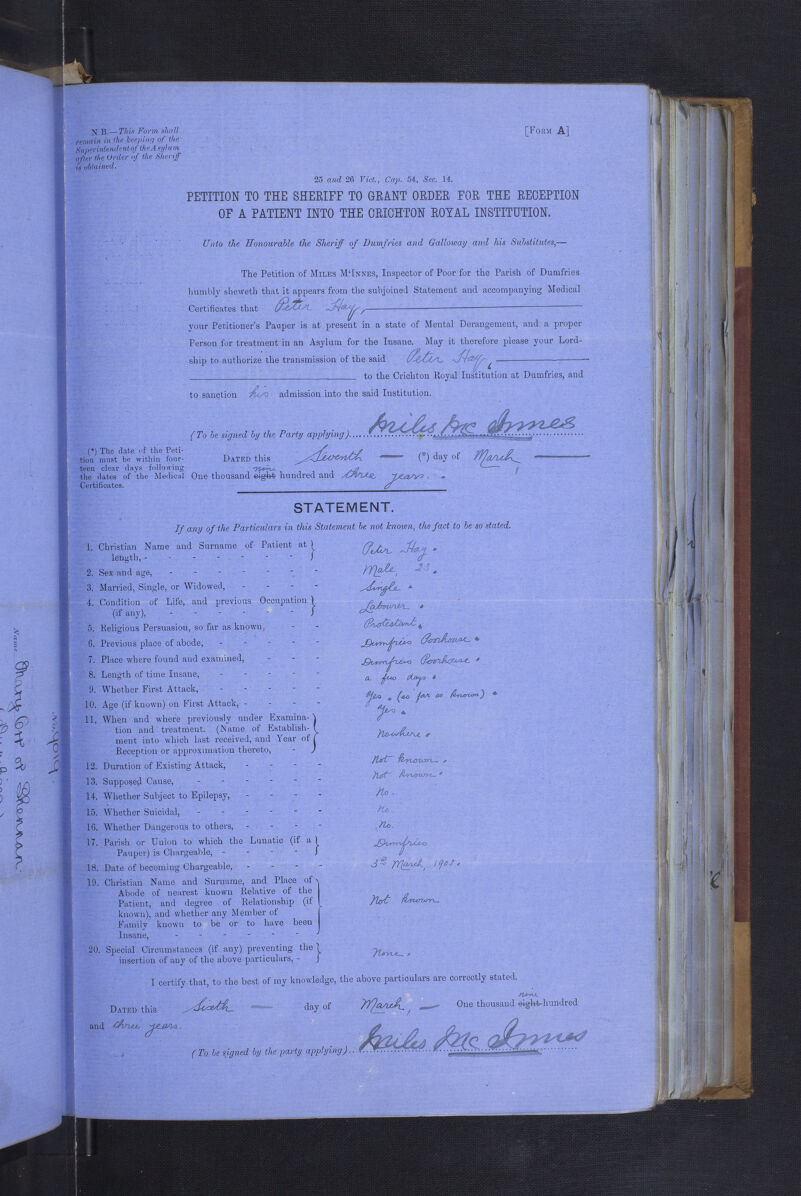 N B.—This Form shall
remain in the keeping of the
Superintendent of the Asylum
after the Order of the Sheriff
is obtained.
[FORM A]
25 and 26 Vict., Cap. 54, Sec. 14.
PETITION TO THE SHERIFF TO GRANT ORDER FOR THE RECEPTION
OF A PATIENT INTO THE CRICHTON ROYAL INSTITUTION.
Unto the Honourable the Sheriff of Dumfries and Galloway and his Substitutes,—
The Petition of MILES M'INNES, Inspector of Poor for the Parish of Dumfries
humbly sheweth that it appears from the subjoined Statement and accompanying Medical
Certificates that Peter Hay,
your Petitioner's Pauper is at present in a state of Mental Derangement, and a proper
Person for treatment in an Asylum for the Insane. May it therefore please your Lord-
ship to authorize the transmission of the said Peter Hay,
to the Crichton Royal Institution at Dumfries, and
to sanction his admission into the said Institution.
(To be signed by the Party applying) Miles Mc Innes
(*) The date of the Peti-
tion must be within four-
teen clear days following
the dates of the Medical
Certificates.
DATED this Seventh — (*) day of March,
One thousand eight nine hundred and three years.
STATEMENT.
If any of the Particulars in this Statement be not known, the fact to be so stated.
1. Christian Name and Surname of Patient at length, - Peter Hay.
2. Sex and age, - Male, 23.
3. Married, Single, or Widowed, - Single.
4. Condition of Life, and previous Occupation (if any), - Labourer.
5. Religious Persuasion, so far as known, - Protestant.
6. Previous place of abode, - Dumfries Poorhouse.
7. Place where found and examined, - Dumfries Poorhouse.
8. Length of time Insane, - a few days.
9. Whether First Attack, - Yes. (so far as known)
10. Age (if known) on First Attack, - Yes.
11. When and where previously under Examina-
tion and treatment. (Name of Establish-
ment into which last received, and Year of
Reception or approximation thereto, Nowhere.
12. Duration of Existing Attack, - Not known.
13. Supposed Cause, - Not known.
14. Whether Subject to Epilepsy, - No.
15. Whether Suicidal, - No.
16. Whether Dangerous to others, - No.
17. Parish or Union to which the Lunatic (if a Pauper) is Chargeable, - Dumfries
18. Date of becoming Chargeable, - March, 1903.
19. Christian Name and Surname, and Place of
Abode of nearest known Relative of the
Patient, and degree of Relationship (if
known), and whether any Member of
Family known to be or to have been
Insane, - Not known
20. Special Circumstances (if any) preventing the insertion of any of the above particulars, - None.
I certify that, to the best of my knowledge, the above particulars are correctly stated.
DATED this Sixth — day of March, — One thousand eight nine hundred
and three years.
(To be signed by the party applying) Miles Mc Innes
Name Mary